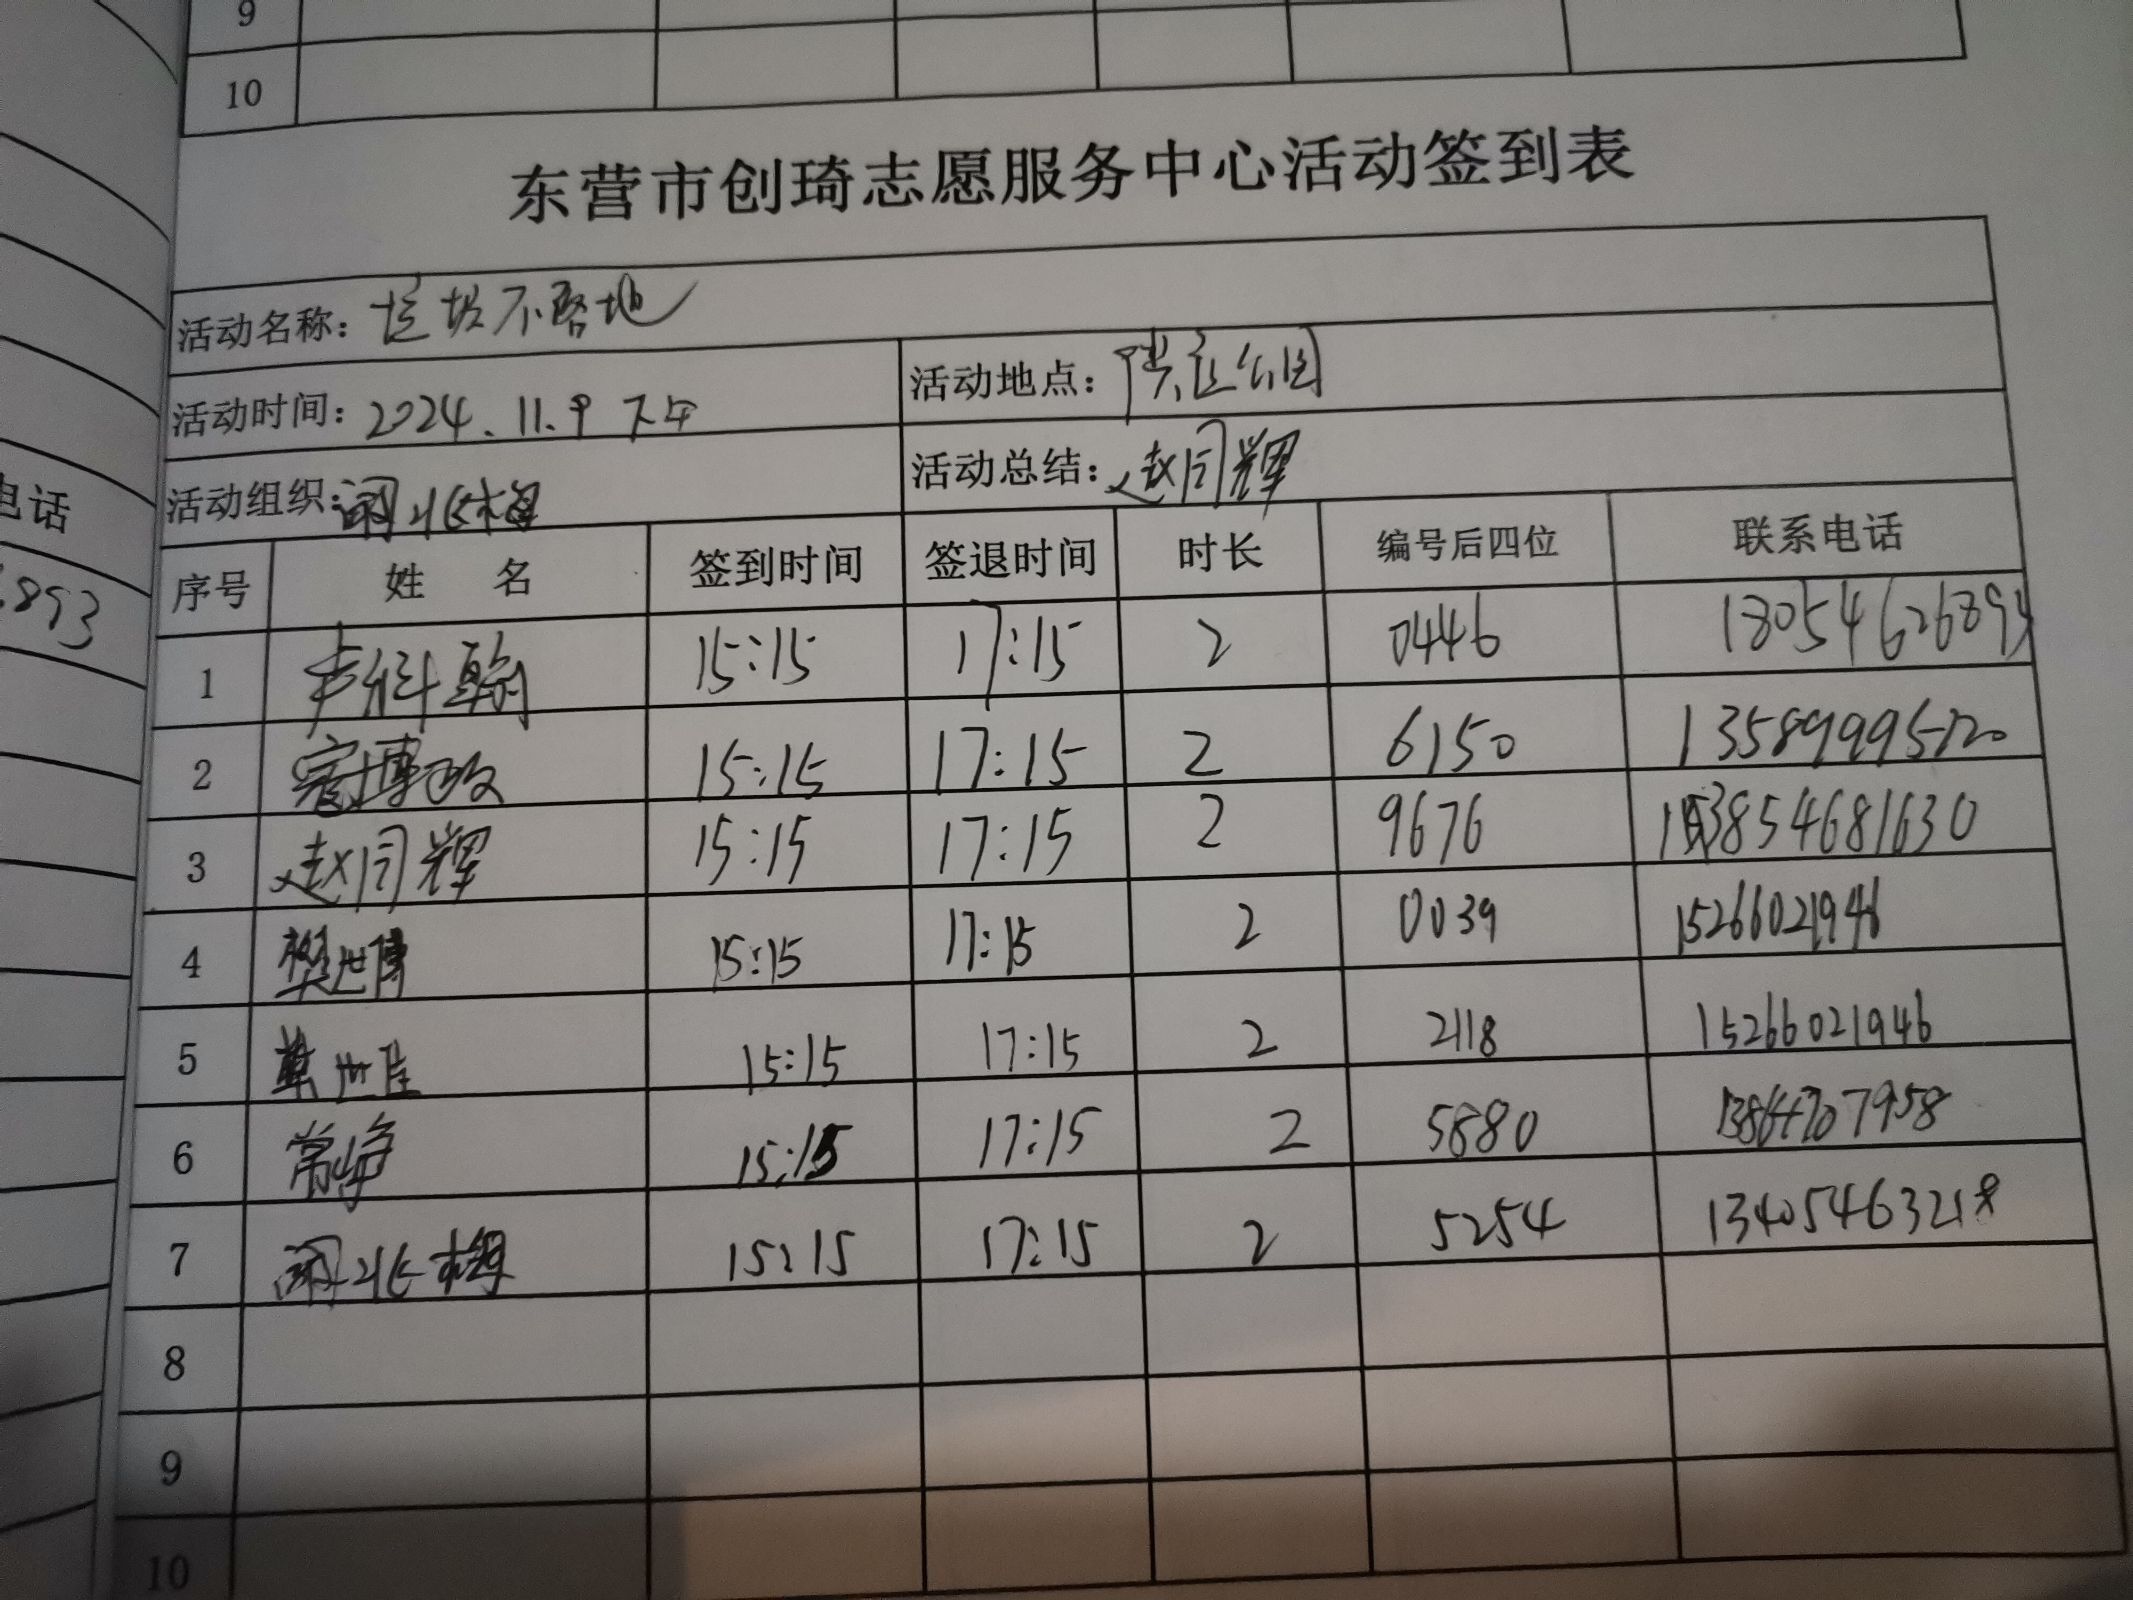 9
10
东营市创琦志愿服务中心活动签到表
活动名称：垃圾不落地
活动时间：2024.11.9 下午 活动地点：
活动组织： 活动总结：赵同辉
电话
893
序号 姓 名 签到时间 签退时间 时长 编号后四位 联系电话
1 15:15 17:15 2 0446 18054626893
2 寇博政 15:15 17:15 2 6150 13589995720
3 赵同辉 15:15 17:15 2 9676 13854681630
4 樊世博 15:15 17:15 2 0039 15266021946
5 15:15 17:15 2 2118 15266021946
6 常峥 15:15 17:15 2 5880
7 15:15 17:15 2 5254 13405463218
8
9
10